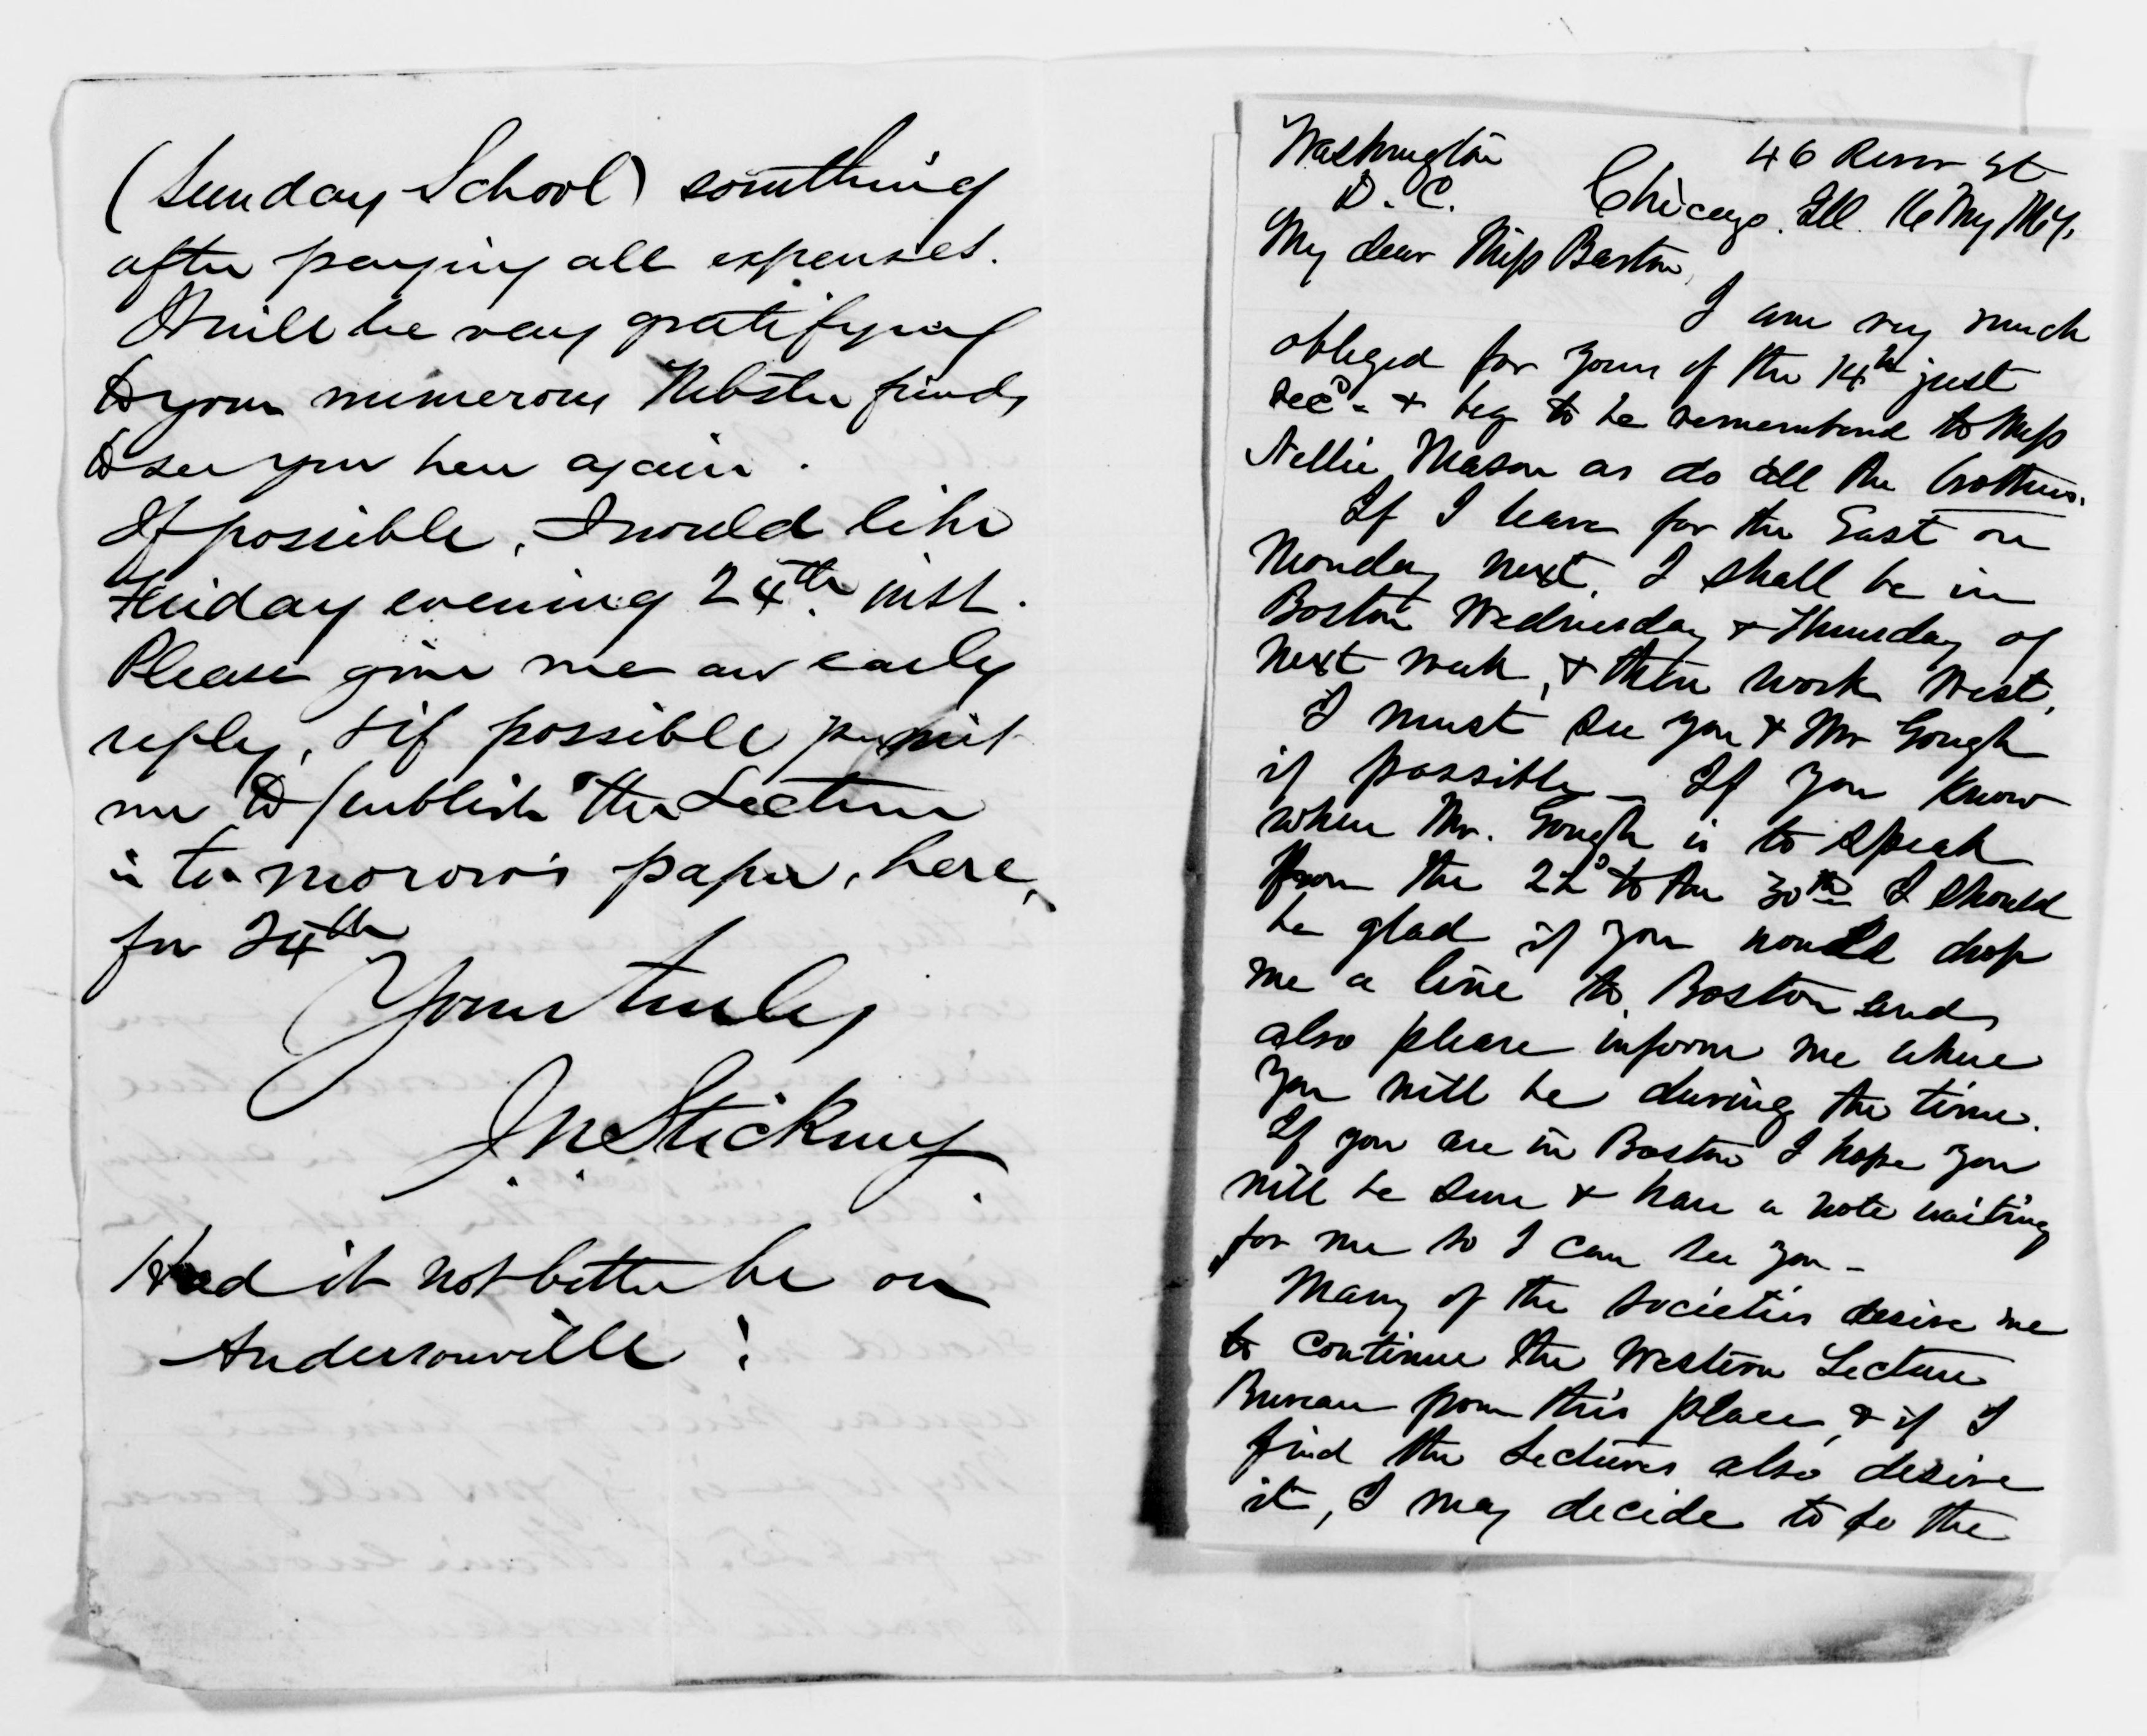 (Sunday School) something
after paying all expenses.
It will be very gratifying
to your numerous Webster friends
to see you here again.
If possible, I would like
Friday evening 24th. inst.
Please give me an early
reply, & if possible permit
me to publish the Lecture
in to-morrow's paper, here,
for 24th
Yours truly
J W Stickney
Had it not better be on
Andersonville?
Washington 46 River St
D. C. Chicago. Ill. 16 My 1867.
My dear Miss Barton,
I am very much
obliged for yours of the 14th just
Recd - & beg to be remembered to Miss
Nellie Mason as do all the brothers.
If I leave for the East on
Monday next, I shall be in
Boston Wednesday & Thursday of
next week, & then work West.
I must see you & Mr Gough
if possible - If you know
when Mr. Gough is to speak
from the 22d to the 30th I should
be glad if you would drop
me a line to Boston and
also please inform me where
you will be during the time.
If you are in Boston I hope you
will be sure & have a note waiting
for me so I can see you -
Many of the societies desire me
to continue the Western Lecture
Bureau from this place, & if I
find the Lecturers also desire
it, I may decide to do the